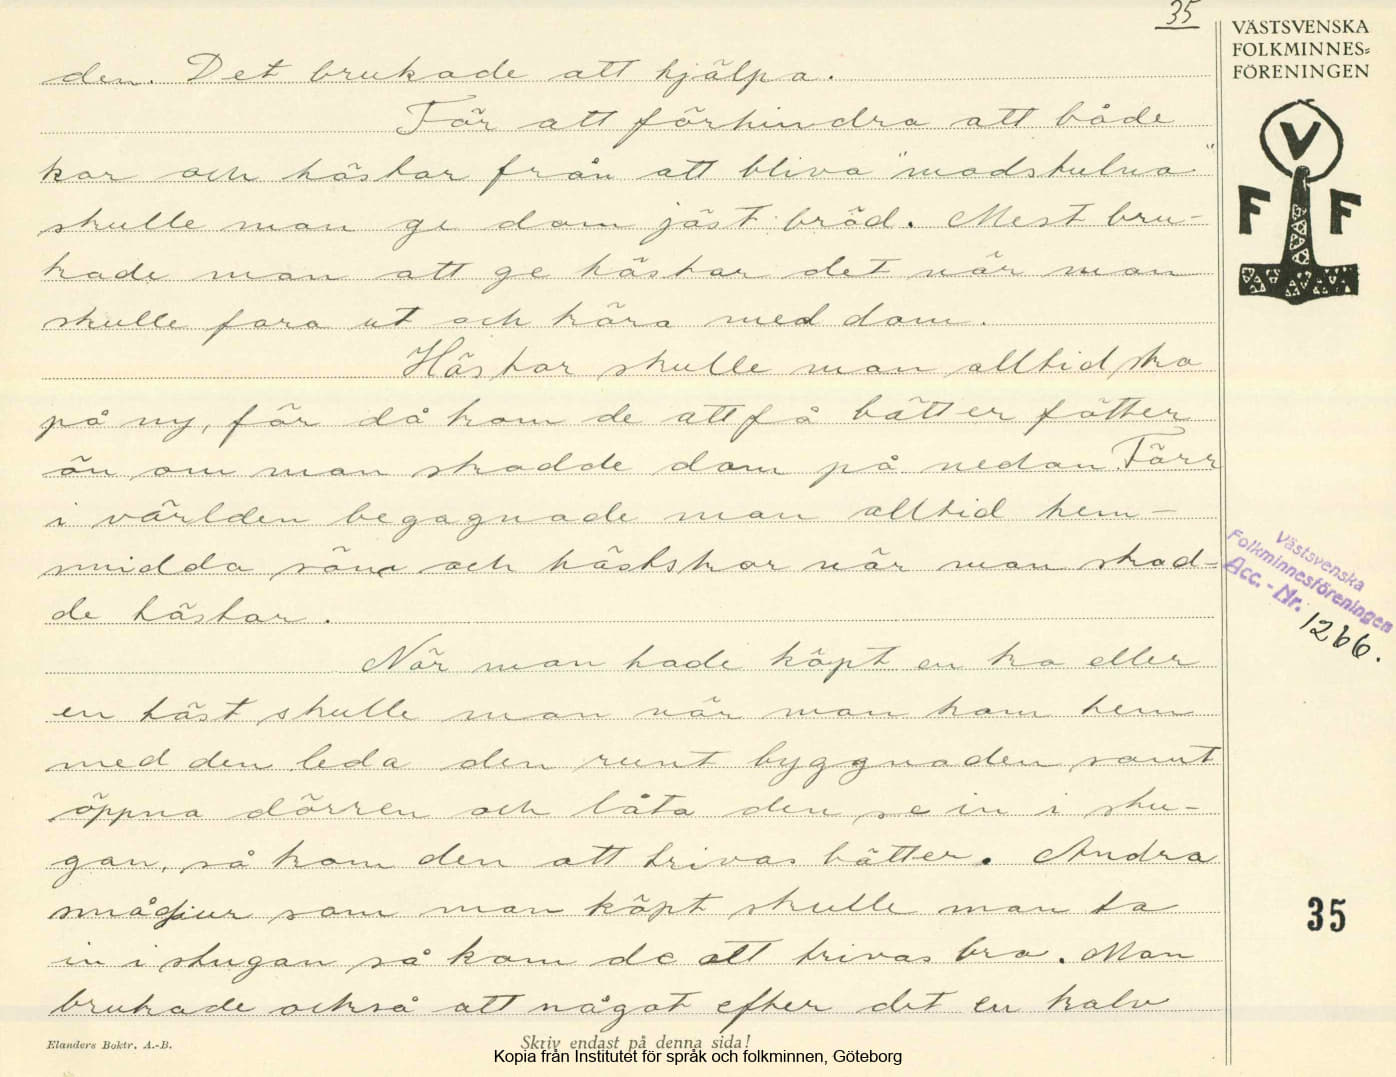 35
VÄSTSVENSKA
FOLKMINNES=
FÖRENINGEN
V
F F
den. Det brukade att hjälpa.
För att förhindra att både
kor och hästar från att bliva "modstulna"
skulle man ge dom jäst bröd. Mest bru-
kade man att ge hästar det när man
skulle fara ut och köra med dom.
Hästar skulle man alltid sko
på ny, för då kom de att få bätter fötter
än om man skodde dom på nedan. Förr
i världen begagnade man alltid hem-
smidda söm och hästskor när man skod-
de hästar.
När man hade köpt en ko eller
en häst skulle man när man kom hem
med den leda den runt byggnaden samt
öppna dörren och låta den se in i stu-
gan, så kom den att trivas bätter. Andra
smådjur som man köpt skulle man ta
in i stugan så kom de att trivas bra. Man
brukade också att något efter det en kalv
Västsvenska
Folkminnesföreningen
Acc.-Nr. 1266.
35
Elanders Boktr. A.-B.
Skriv endast på denna sida!
Kopia från Institutet för språk och folkminnen, Göteborg